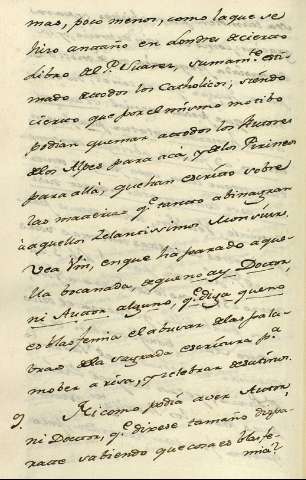 mas, poco menos, como la que se
hizo antaño en Londres à cierto
Libro del P. Suarez, sumamte. esti-
mado de todos los Catholicos; siendo
cierto que por el mismo motibo
podian quemar à todos los Autores
de los Alpes para acà, y de los Pirineos
para allà, que han escrito sobre
las materias qe. tanto abinagran
à aquellos zelantissimos Monsiures.
Vea Vm, en que ha parado aque-
lla bocanada, de que no ay Doctor,
ni Autor alguno, qe. diga que no
es blasfemia el abusar de las pala-
bras de la sagrada escritura pa.
mober a risa, y celebrar desatinos.
9. Ni como podia aver Autor,
ni Doctor, qe. dixese tamaño dispa-
rate sabiendo que cosa es blasfe-
mia?